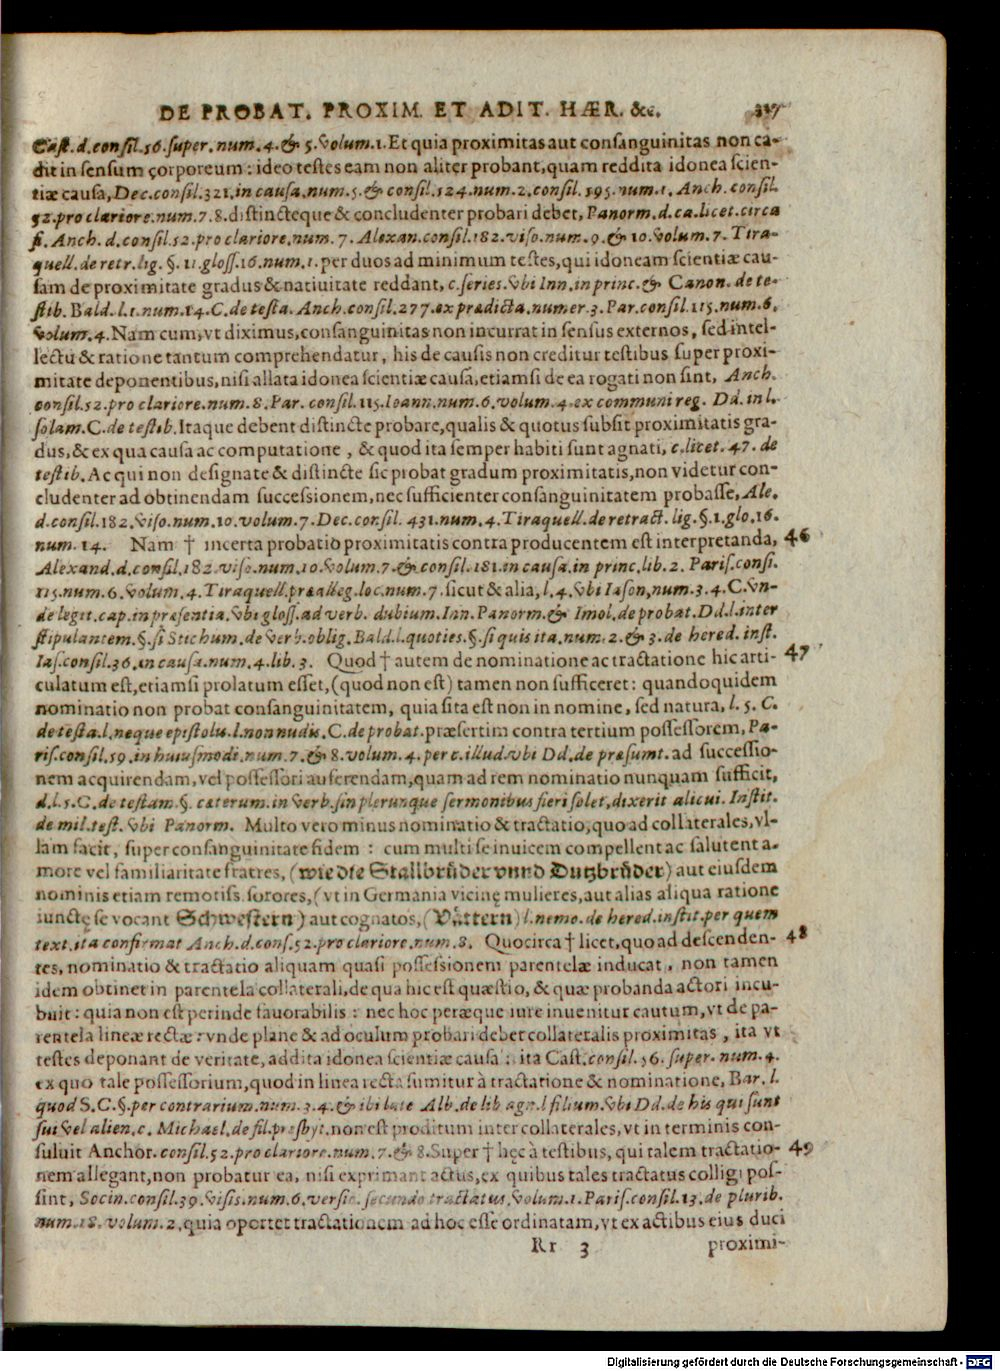 DE PROBAT. PROXIM. ET ADIT. HÆR. &c. 317
Cast. d. consil. 56. super. num. 4. & 5. volum. 1. Et quia proximitas aut consanguinitas non ca-
dit in sensum çorporeum: ideo testes eam non aliter probant, quam reddita idonea scien-
tiæ causa, Dec. consil. 321. in causa. num. 5. & consil. 524. num. 2. consil. 595. num. 1. Anch. consil.
52. pro clariore. num. 7. 8. distincteque & concludenter probari debet, Panorm. d. ca. licet. circa
fi. Anch. d. consil. 52. pro clariore. num. 7. Alexan. consil. 182. viso. num. 9. & 10. volum. 7. Tira-
quell. de retr. lig. §. 11. gloss. 16. num. 1. per duos ad minimum testes, qui idoneam scientiæ cau-
sam de proximitate gradus & natiuitate reddant, c. series. vbi Inn. in princ. & Canon. de te-
stib. Bald. l. 1. num. 14. C. de testa. Anch. consil. 277. ex prædicta. numer. 3. Par. consil. 115. num. 6.
volum. 4. Nam cum, vt diximus, consanguinitas non incurrat in sensus externos, sed intel-
lectu & ratione tantum comprehendatur, his de causis non creditur testibus super proxi-
mitate deponentibus, nisi allata idonea scientiæ causa, etiamsi de ea rogati non sint, Anch.
consil. 52. pro clariore. num. 8. Par. consil. 115. Ioann. num. 6. volum. 4. ex communi reg. Dd. in l.
solam. C. de testib. Itaque debent distincte probare, qualis & quotus subsit proximitatis gra-
dus, & ex qua causa ac computatione, & quod ita semper habiti sunt agnati, c. licet. 47. de
testib. Ac qui non designate & distincte sic probat gradum proximitatis, non videtur con-
cludenter ad obtinendam successionem, nec sufficienter consanguinitatem probasse, Ale.
d. consil. 182. viso. num. 10. volum. 7. Dec. consil. 431. num. 4. Tiraquell. de retract. lig. §. 1. glo. 16.
num. 14. Nam † incerta probatio proximitatis contra producentem est interpretanda, 46
Alexand. d. consil. 182. viso. num. 10. volum. 7. & consil. 181. in causa. in princ. lib. 2. Paris. consi.
115. num. 6. volum. 4. Tiraquell. præalleg. loc. num. 7. sicut & alia, l. 4. vbi Iason, num. 3. 4. C. vn-
de legit. cap. in præsentia. vbi gloss. ad verb. dubium. Inn. Panorm. & Imol. de probat. Dd. l. inter
stipulantem. §. si Stichum. de verb. oblig. Bald. l. quoties. §. si quis ita. num. 2. & 3. de hered. inst.
Ias. consil. 36. in causa. num. 4. lib. 3. Quod † autem de nominatione ac tractatione hic arti- 47
culatum est, etiamsi prolatum esset, (quod non est) tamen non sufficeret: quandoquidem
nominatio non probat consanguinitatem, quia sita est non in nomine, sed natura, l. 5. C.
de testa. l. neque epistolu. l. non nudu. C. de probat. præsertim contra tertium possessorem, Pa-
ris. consil. 59. in huiusmodi. num. 7. & 8. volum. 4. per c. illud. vbi Dd. de præsumt. ad successio-
nem acquirendam, vel possessori auferendam, quam ad rem nominatio nunquam sufficit,
d. l. 5. C. de testam. §. cæterum. in verb. sin plerunque sermonibus fieri solet, dixerit alicui. Instit.
de mil. test. vbi Panorm. Multo vero minus nominatio & tractatio, quo ad collaterales, vl-
lam facit, super consanguinitate fidem: cum multi se inuicem compellent ac salutent a-
more vel familiaritate fratres, (wie die Stallbrůder vnnd Dutzbrůder) aut eiusdem
nominis etiam remotiss. sorores, (vt in Germania vicinę mulieres, aut alias aliqua ratione
iunctę se vocant Schwestern) aut cognatos, (Vättern) l. nemo. de hered. instit. per quem
text. ita confirmat Anch. d. cons. 52. pro clariore. num. 8. Quocirca † licet, quo ad descenden- 48
tes, nominatio & tractatio aliquam quasi possessionem parentelæ inducat, non tamen
idem obtinet in parentela collaterali, de qua hic est quæstio, & quæ probanda actori incu-
buit: quia non est perinde fauorabilis: nec hoc peræque iure inuenitur cautum, vt de pa-
rentela lineæ rectæ: vnde plane & ad oculum probari debet collateralis proximitas, ita vt
testes deponant de veritate, addita idonea scientiæ causa: ita Cast. consil. 56. super. num. 4.
ex quo tale possessorium, quod in linea recta sumitur à tractatione & nominatione, Bar. l.
quod S. C. §. per contrarium. num. 3. 4. & ibi late Alb. de lib. agn. l filium. vbi Dd. de his qui sunt
sui vel alien. c. Michael. de fil. presbyt. non est proditum inter collaterales, vt in terminis con-
suluit Anchor. consil. 52. pro clariore. num. 7. & 8. Super † hęc à testibus, qui talem tractatio- 49
nem allegant, non probatur ea, nisi exprimant actus, ex quibus tales tractatus colligi pos-
sint, Socin. consil. 39. visis. num. 6. versic. secundo tractatus. volum. 1. Paris. consil. 13. de plurib.
num. 18. volum. 2. quia oportet tractationem ad hoc esse ordinatam, vt ex actibus eius duci
Rr 3 proximi-
Digitalisierung gefördert durch die Deutsche Forschungsgemeinschaft - DFG